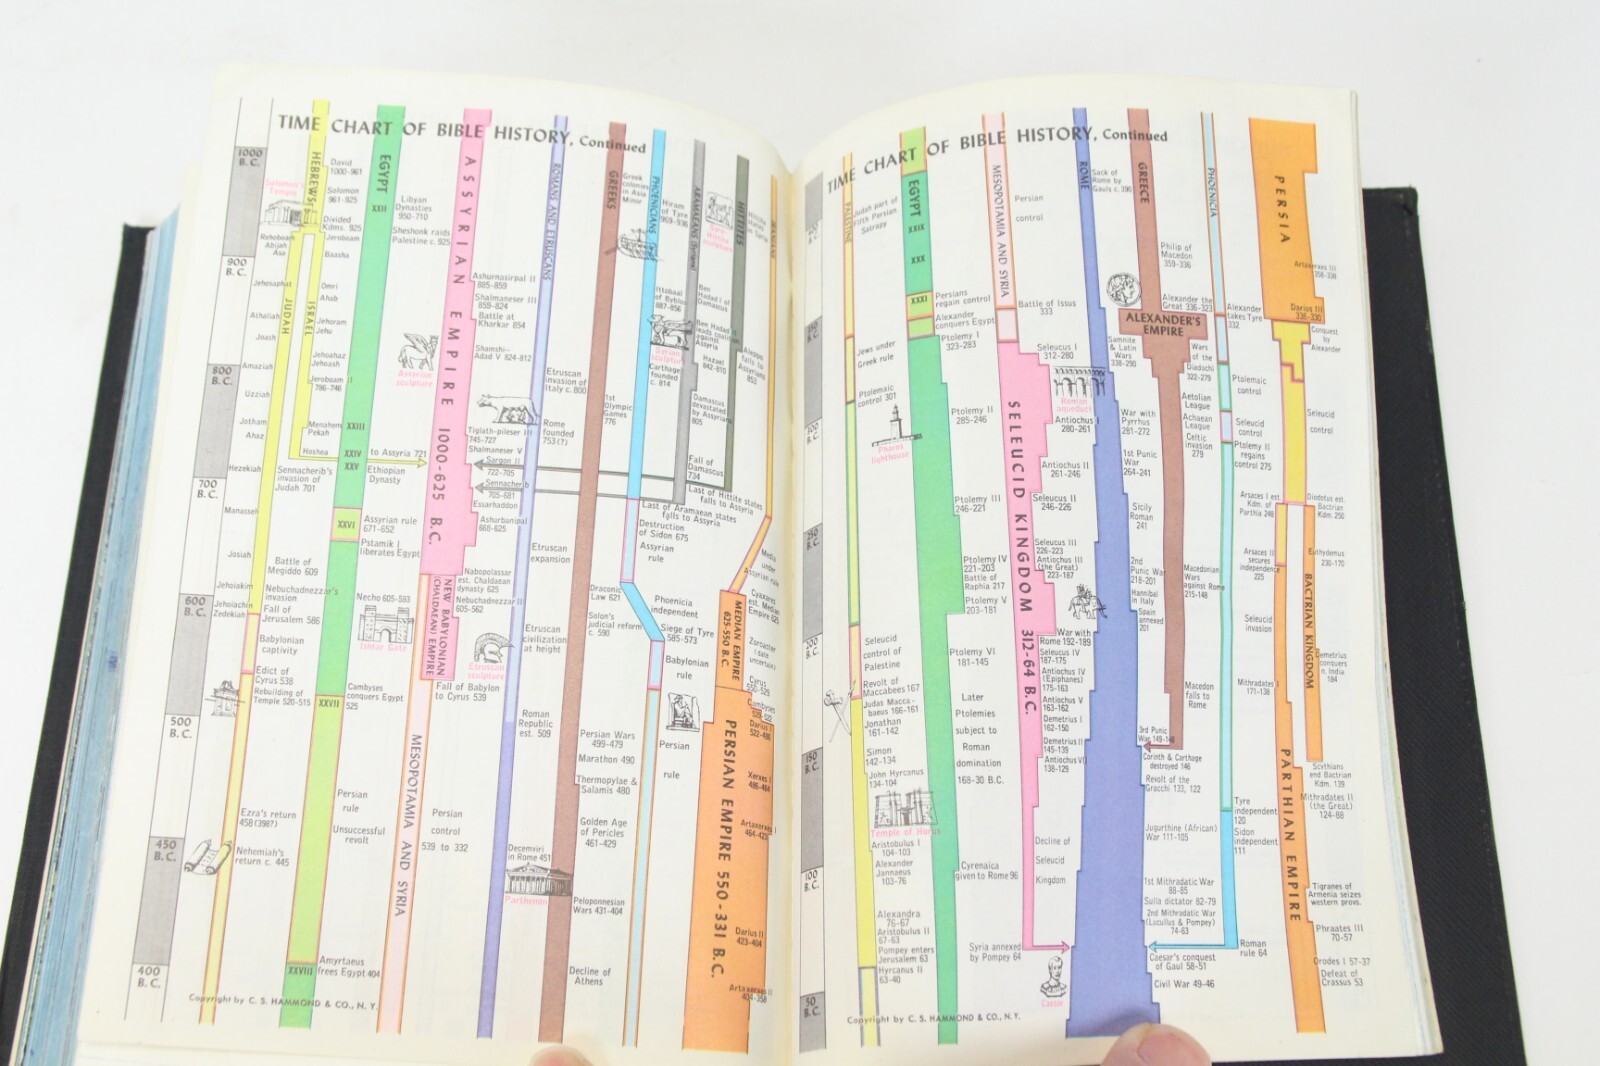 TIME CHART OF BIBLE HISTORY, Continued
1000
B. C.
900
B. C.
800
B. C.
700
B. C.
600
B. C.
500
B. C.
450
B. C.
400
B. C.
HEBREWS
David
1000-961
Solomon's
Temple
Solomon
961-925
Divided
Kdms. 925
Rehoboam
Abijah
Asa
Jeroboam
Baasha
Jehosaphat
Omri
Ahab
JUDAH
ISRAEL
Athaliah
Jehoram
Jehu
Joash
Jehoahaz
Jehoash
Amaziah
Jeroboam II
786-746
Uzziah
Jotham
Ahaz
Menahem
Pekah
Hoshea
Hezekiah
Sennacherib's
invasion of
Judah 701
Manasseh
Josiah
Battle of
Megiddo 609
Jehoiakim
Nebuchadnezzar's
invasion
Jehoiachin
Zedekiah
Fall of
Jerusalem 586
Babylonian
captivity
Edict of
Cyrus 538
Rebuilding of
Temple 520-515
Ezra's return
458 (398?)
Nehemiah's
return c. 445
EGYPT
XXII
Libyan
Dynasties
950-710
Sheshonk raids
Palestine c. 925
XXIII
XXIV
XXV
to Assyria 721
Ethiopian
Dynasty
XXVI
Assyrian rule
671-652
Pstamik I
liberates Egypt
Necho 605-583
Ishtar Gate
XXVII
Cambyses
conquers Egypt
525
Persian
rule
Unsuccessful
revolt
XXVIII
Amyrtaeus
frees Egypt 404
ASSYRIAN EMPIRE 1000-625 B.C.
Ashurnasirpal II
885-859
Shalmaneser III
859-824
Battle at
Kharkar 854
Assyrian
sculpture
Shamshi-
Adad V 824-812
Tiglath-pileser III
745-727
Shalmaneser V
Sargon II
722-705
Sennacherib
705-681
Essarhaddon
Ashurbanipal
668-625
Nabopolassar
est. Chaldaean
dynasty 625
Nebuchadnezzar II
605-562
NEW BABYLONIAN
(CHALDAEAN) EMPIRE
Fall of Babylon
to Cyrus 539
MESOPOTAMIA AND SYRIA
Persian
control
539 to 332
ROMANS AND ETRUSCANS
Etruscan
invasion of
Italy c. 800
Rome
founded
753(?)
Etruscan
expansion
Etruscan
civilization
at height
Etruscan
sculpture
Roman
Republic
est. 509
Decemviri
in Rome 451
Parthenon
GREEKS
Greek
colonies
in Asia
Minor
1st
Olympic
Games
776
Draconic
Law 621
Solon's
judicial reform
c. 590
Persian Wars
499-479
Marathon 490
Thermopylae &
Salamis 480
Golden Age
of Pericles
461-429
Peloponnesian
Wars 431-404
Decline of
Athens
PHOENICIANS
Hiram
of Tyre
969-936
Ittobaal
of Byblos
887-856
Syrian
sculpture
Carthage
founded
c. 814
Destruction
of Sidon 675
Assyrian
rule
Phoenicia
independent
Siege of Tyre
585-573
Babylonian
rule
Persian
rule
ARAMAEANS (Syrians)
Ben
Hadad I of
Damascus
Ben Hadad II
leads coalition
against
Assyria
Hazael
842-810
Damascus
devastated
by Assyrians
805
Fall of
Damascus
734
Last of Aramaean states
falls to Assyria
HITTITES
Aleppo
falls to
Assyrians
853
Last of Hittite states
falls to Assyria
Media
under
Assyrian rule
Cyaxares
est. Median
Empire 625
MEDIAN EMPIRE
625-550 B.C.
Zoroaster
(date
uncertain)
Cyrus
550-529
Cambyses
529-522
Darius I
522-486
PERSIAN EMPIRE 550-331 B.C.
Xerxes I
486-464
Artaxerxes I
464-423
Darius II
423-404
Artaxerxes II
404-358
Copyright by C. S. HAMMOND & CO., N. Y.
TIME CHART OF BIBLE HISTORY, Continued
B. C.
100
B. C.
50
B. C.
PALESTINE
Judah part of
Fifth Persian
Satrapy
Jews under
Greek rule
Ptolemaic
control 301
Pharos
lighthouse
Seleucid
control of
Palestine
Revolt of
Maccabees 167
Judas Macca-
baeus 166-161
Jonathan
161-142
Simon
142-134
John Hyrcanus
134-104
Temple of Horus
Aristobulus I
104-103
Alexander
Jannaeus
103-76
Alexandra
76-67
Aristobulus II
67-63
Pompey enters
Jerusalem 63
Hyrcanus II
63-40
EGYPT
XXIX
XXX
XXXI
Persians
regain control
Alexander
conquers Egypt
Ptolemy I
323-283
Ptolemy II
285-246
Ptolemy III
246-221
Ptolemy IV
221-203
Battle of
Raphia 217
Ptolemy V
203-181
Ptolemy VI
181-145
Later
Ptolemies
subject to
Roman
domination
168-30 B.C.
Cyrenaica
given to Rome 96
MESOPOTAMIA AND SYRIA
Persian
control
Battle of Issus
333
Seleucus I
312-280
SELEUCID KINGDOM 312-64 B.C.
Antiochus I
280-261
Antiochus II
261-246
Seleucus II
246-226
Seleucus III
226-223
Antiochus III
(the Great)
223-187
War with
Rome 192-189
Seleucus IV
187-175
Antiochus IV
(Epiphanes)
175-163
Antiochus V
163-162
Demetrius I
162-150
Demetrius II
145-139
Antiochus VII
138-129
Decline of
Seleucid
Kingdom
Syria annexed
by Pompey 64
ROME
Sack of
Rome by
Gauls c. 390
Samnite
& Latin
Wars
338-290
Roman
aqueduct
War with
Pyrrhus
281-272
1st Punic
War
264-241
Sicily
Roman
241
2nd
Punic War
218-201
Hannibal
in Italy
Spain
annexed
201
3rd Punic
War 149-146
Corinth & Carthage
destroyed 146
Revolt of the
Gracchi 133, 122
Jugurthine (African)
War 111-105
1st Mithradatic War
88-85
Sulla dictator 82-79
2nd Mithradatic War
(Lucullus & Pompey)
74-63
Caesar's conquest
of Gaul 58-51
Civil War 49-46
GREECE
Philip of
Macedon
359-336
Alexander the
Great 336-323
ALEXANDER'S
EMPIRE
Wars
of the
Diadochi
322-279
Aetolian
League
Achaean
League
Celtic
invasion
279
Macedonian
Wars
against Rome
215-148
Macedon
falls to
Rome
PHOENICIA
Alexander
takes Tyre
332
Ptolemaic
control
Seleucid
control
Ptolemy II
regains
control 275
Seleucid
invasion
Tyre
independent
120
Sidon
independent
111
Roman
rule 64
PERSIA
Artaxerxes III
358-338
Darius III
336-330
Conquest
by
Alexander
Seleucid
control
Arsaces I est.
Kdm. of
Parthia 248
Diodotus est.
Bactrian
Kdm. 250
Arsaces II
secures
independence
225
Euthydemus
230-170
BACTRIAN KINGDOM
Demetrius
conquers
n. India
184
Mithradates I
171-138
PARTHIAN EMPIRE
Scythians
end Bactrian
Kdm. 139
Mithradates II
(the Great)
124-88
Tigranes of
Armenia seizes
western provs.
Phraates III
70-57
Orodes I 57-37
Defeat of
Crassus 53
Copyright by C. S. HAMMOND & CO., N. Y.